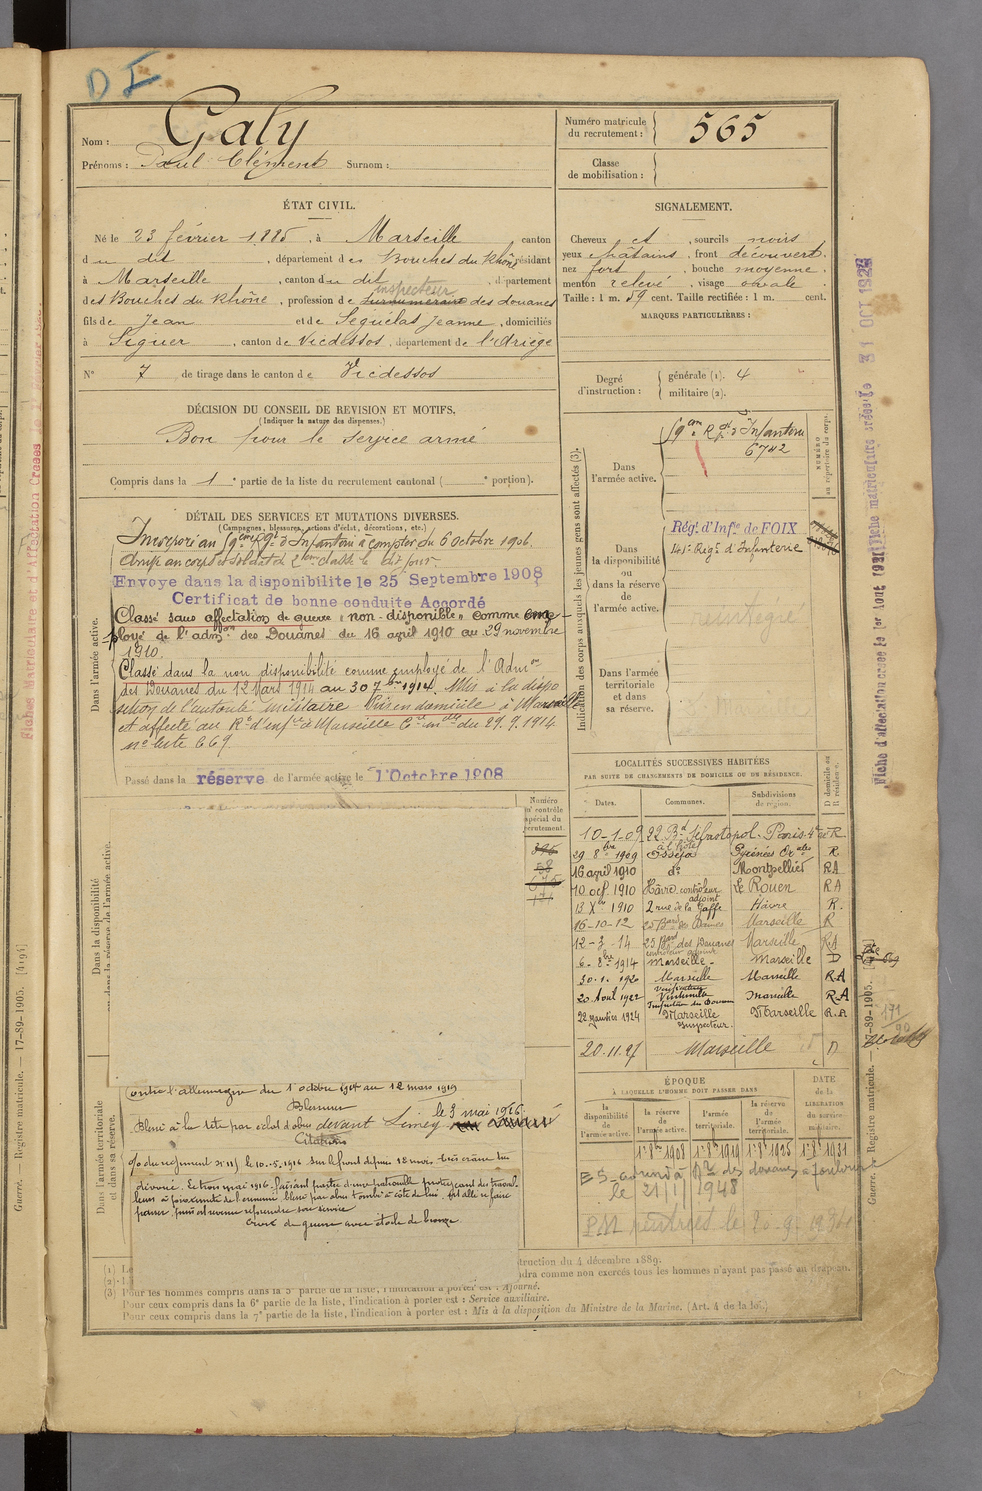 D I
Nom : Galy
Prénoms : Paul Clément Surnom :
Numéro matricule du recrutement : 565
Classe de mobilisation :
ÉTAT CIVIL.
Né le 23 février 1885, à Marseille canton
du dit, département des Bouches du Rhône résidant
à Marseille, canton du dit, département
inspecteur
des Bouches du Rhône, profession de surnuméraire des douanes
fils de Jean et de Séguélas Jeanne, domiciliés
à Siguer, canton de Vicdessos, département de l'Ariège
N° 7 de tirage dans le canton de Vicdessos
SIGNALEMENT.
Cheveux et, sourcils noirs
yeux châtains, front découvert.
nez fort, bouche moyenne.
menton relevé, visage ovale
Taille : 1 m. 59 cent. Taille rectifiée : 1 m. cent.
MARQUES PARTICULIÈRES :
Degré d'instruction : générale (1). 4
militaire (2).
DÉCISION DU CONSEIL DE REVISION ET MOTIFS.
(Indiquer la nature des dispenses.)
Bon pour le service armé
Compris dans la 1e partie de la liste du recrutement cantonal ( e portion).
DÉTAIL DES SERVICES ET MUTATIONS DIVERSES.
(Campagnes, blessures, actions d'éclat, décorations, etc.)
Incorporé au 9eme Rgt d'Infanterie à compter du 6 octobre 1906.
Arrivé au corps et soldat de 2eme classe le dit jour
Envoyé dans la disponibilité le 25 Septembre 1908
Certificat de bonne conduite Accordé
Classé sans affectation de guerre "non-disponible" comme em-
ployé de l'admon des Douanes du 16 april 1910 au 29 novembre
1910.
Classé dans la non disponibilité comme employé de l'Admon
des Douanes du 12 Mars 1914 au 30 7bre 1914. Mis à la dispo
sition de l'autorité militaire Puis en domicile à Marseille
et affecté au Rt d'infie à Marseille Cre mlle du 29.9.1914
n° liste 669.
Passé dans la réserve de l'armée active le 1 Octobre 1908
Dans l'armée active.
Dans la disponibilité
ou dans la réserve de l'armée active.
Dans l'armée territoriale
et dans sa réserve.
Numéro
au contrôle
spécial du
recrutement.
Indication des corps auxquels les jeunes gens sont affectés (3).
Dans l'armée active.
9eme Rgt d'Infanterie
6742
NUMÉRO
au répertoire du corps.
Dans la disponibilité ou dans la réserve de l'armée active.
Régt. d'Infie de FOIX
141e Régt d'Infanterie
réintégré
Dans l'armée territoriale et dans sa réserve.
LOCALITÉS SUCCESSIVES HABITÉES
PAR SUITE DE CHANGEMENTS DE DOMICILE OU DE RÉSIDENCE.
Dates. Communes. Subdivisions de région. D domicile ou R résidence.
10-1-09 22 Bd Sébastopol. Paris 4e R
29 8bre 1909 Osséja Pyrénées Orales R
16 april 1910 do Montpellier RA
10 oct. 1910 Hâvre contrôleur adjoint Le Rouen RA
13 Xbre 1910 2 rue de la Gaffe Hâvre R.
16-10-12 25 Bard des Dames Marseille R
12-3-14 25 Bard des Douanes Marseille RA
6-8bre 1914 Marseille - Marseille D
30.1. 1920 Marseille Marseille RA
20 Avril 1922 Vérificateur Marseille RA
22 janvier 1924 Inspection des Douanes Marseille Inspecteur. Marseille R.A
20.11.27 Marseille D
ÉPOQUE
À LAQUELLE L'HOMME DOIT PASSER DANS
DATE de la LIBÉRATION du service militaire.
la disponibilité de l'armée active. la réserve de l'armée active. l'armée territoriale. la réserve de l'armée territoriale.
1er 8bre 1908 1er 8bre 1919 1er 8bre 1925 1er 8bre 1931
le 21/1/1948
contre l'allemagne du 1 octobre 1914 au 12 mars 1919
Blessure
le 3 mai 1916
Blessé à la tête par éclat d'obus devant
Citations
o/o du régiment n° 115 le 10.5.1916 Sur le front depuis 18 mois très crâne très
dévoué. Le trois mai 1916 faisant partie d'une patrouille protégeant des travail-
leurs à proximité de l'ennemi, blessé par obus tombé à côté de lui, est allé se faire
panser, puis est revenu reprendre son service
Croix de guerre avec étoile de bronze
(1) Le
truction du 4 décembre 1889.
(2)
dra comme non exercés tous les hommes n'ayant pas passé au drapeau.
(3) Pour les hommes compris dans la 5e partie de la liste, l'indication à porter est : Ajourné.
Pour ceux compris dans la 6e partie de la liste, l'indication à porter est : Service auxiliaire.
Pour ceux compris dans la 7e partie de la liste, l'indication à porter est : Mis à la disposition du Ministre de la Marine. (Art. 4 de la loi.)
Guerre. — Registre matricule. — 17-89-1905. [4194]
Guerre. Registre matricule. — 17-89-1905.
171
90